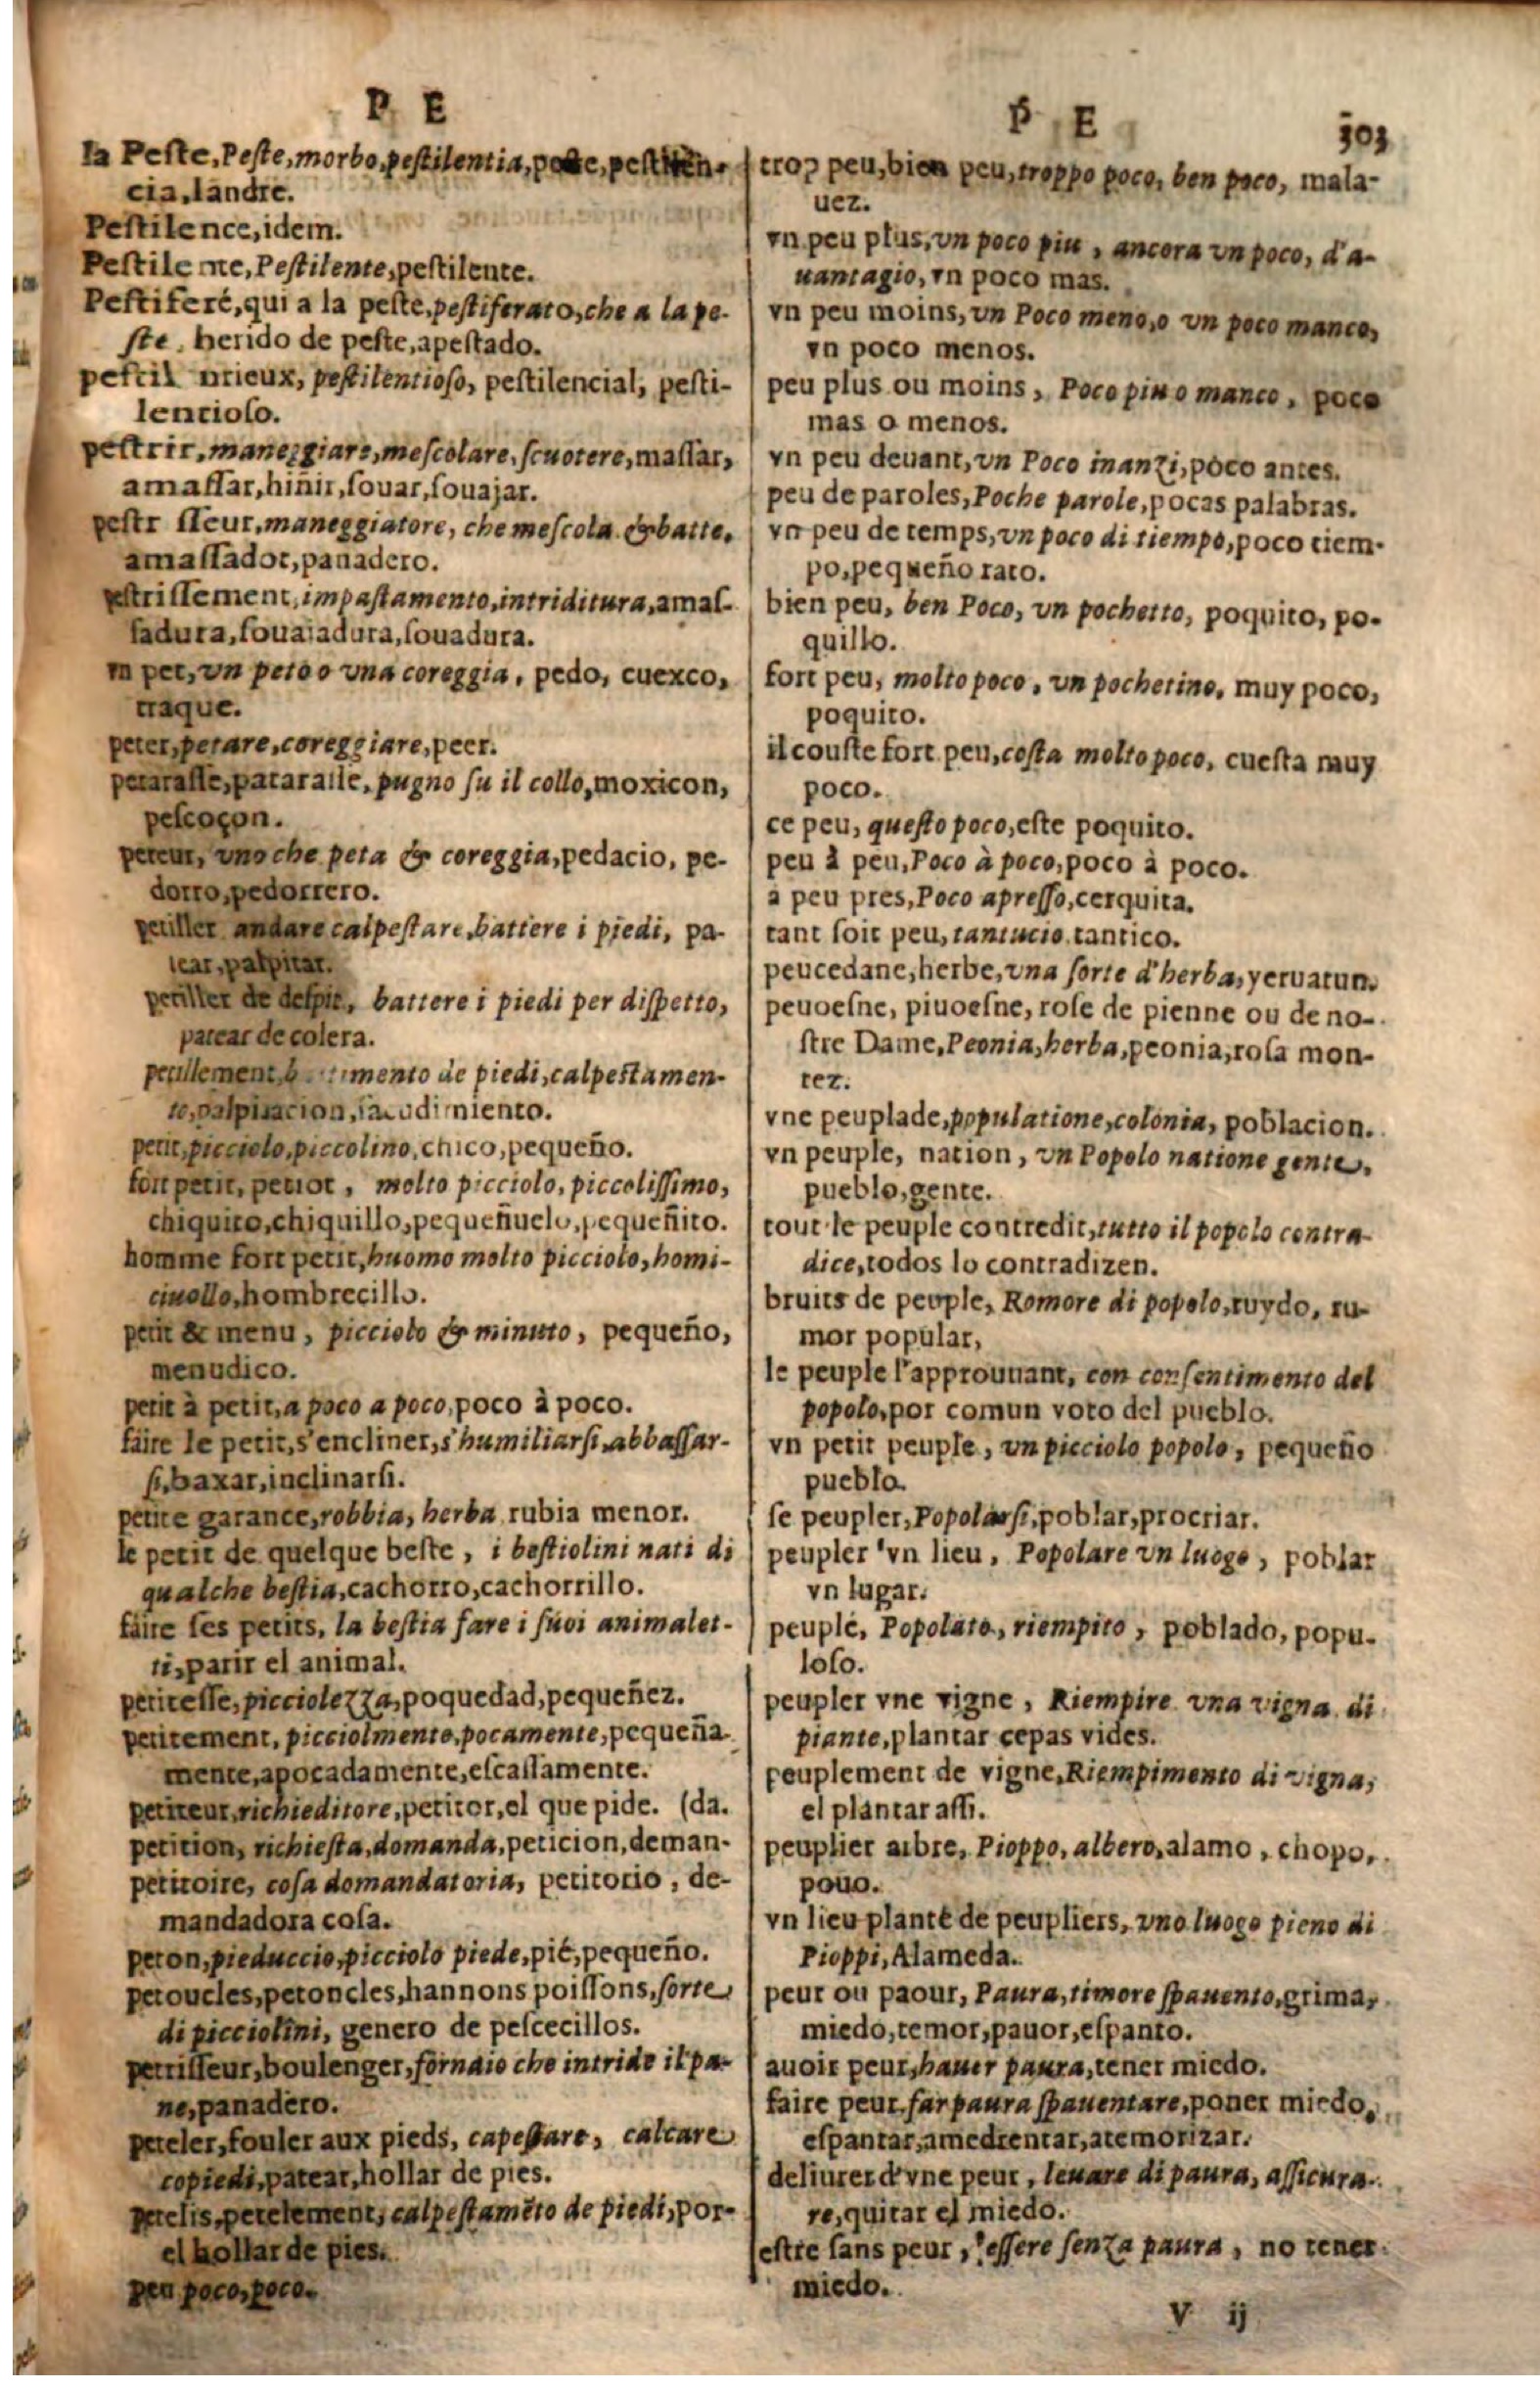 P E
la Peſte, Peſte, morbo, peſtilentia, peſte, peſtilen-
cia, landre.
Peſtilence, idem.
Peſtile nte, Peſtilente, peſtilente.
Peſtiferé, qui a la peſte, peſtiferato, che a la pe-
ſte, herido de peſte, apeſtado.
peſtil ntieux, peſtilentioſo, peſtilencial, peſti-
lencioſo.
peſtrir, maneggiare, meſcolare, ſcuotere, maſſar,
amaſſar, hiñir, ſouar, ſouajar.
peſtr ſſeur, maneggiatore, che meſcola & batte,
amaſſador, panadero.
peſtriſſement, impaſtamento, intriditura, amaſ-
ſadura, ſouaiadura, ſouadura.
vn pet, vn peto o vna coreggia, pedo, cuexco,
traque.
peter, petare, coreggiare, peer.
petaraſſe, pataraſſe, pugno ſu il collo, moxicon,
peſcoçon.
peteur, vno che peta & coreggia, pedacio, pe-
dorro, pedorrero.
petiller andare calpeſtare, battere i piedi, pa-
tear, palpitar.
petiller de deſpit, battere i piedi per diſpetto,
patear de colera.
petillement, mento de piedi, calpeſtamen-
to, palpitacion, ſacudimiento.
petit, picciolo, piccolino, chico, pequeño.
fort petit, petiot, molto picciolo, piccoliſſimo,
chiquito, chiquillo, pequeñuelo, pequeñito.
homme fort petit, huomo molto picciolo, homi-
ciuollo, hombrecillo.
petit & menu, picciolo & minuto, pequeño,
menudico.
petit à petit, a poco a poco, poco à poco.
faire le petit, s'encliner, s'humiliarſi, abbaſſar-
ſi, baxar, inclinarſi.
petite garance, robbia, herba rubia menor.
le petit de quelque beſte, i beſtiolini nati di
qualche beſtia, cachorro, cachorrillo.
faire ſes petits, la beſtia fare i ſuoi animalet-
ti, parir el animal.
petiteſſe, picciolezza, poquedad, pequeñez.
petitement, picciolmente, pocamente, pequeña-
mente, apocadamente, eſcaſſamente.
petiteur, richieditore, petitor, el que pide. (da.
petition, richieſta, domanda, peticion, deman-
petitoire, coſa domandatoria, petitorio, de-
mandadora coſa.
peton, pieduccio, picciolo piede, pié, pequeño.
petoucles, petoncles, hannons poiſſons, ſorte
di picciolini, genero de peſcecillos.
petriſſeur, boulenger, fornaio che intride il pa-
ne, panadero.
peteler, fouler aux pieds, capeſtare, calcare
copiedi, patear, hollar de pies.
petelis, petelement, calpeſtamẽto de piedi, por-
el hollar de pies.
peu poco, poco.
P E 303
trop peu, bien peu, troppo poco, ben poco, mala-
uez.
vn peu plus, vn poco piu, ancora vn poco, d'a-
uantagio, vn poco mas.
vn peu moins, vn Poco meno, o vn poco manco,
vn poco menos.
peu plus ou moins, Poco piu o manco, poco
mas o menos.
vn peu deuant, vn Poco inanzi, poco antes.
peu de paroles, Poche parole, pocas palabras.
vn peu de temps, vn poco di tiempo, poco tiem-
po, pequeño rato.
bien peu, ben Poco, vn pochetto, poquito, po-
quillo.
fort peu, molto poco, vn pochetino, muy poco,
poquito.
il couſte fort peu, coſta molto poco, cueſta muy
poco.
ce peu, queſto poco, eſte poquito.
peu à peu, Poco à poco, poco à poco.
a peu pres, Poco apreſſo, cerquita.
tant ſoit peu, tantucio tantico.
peucedane, herbe, vna ſorte d'herba, yeruatun.
peuoeſne, piuoeſne, roſe de pienne ou de no-
ſtre Dame, Peonia, herba, peonia, roſa mon-
tez.
vne peuplade, populatione, colonia, poblacion.
vn peuple, nation, vn Popolo natione gente,
pueblo, gente.
tout le peuple contredit, tutto il popolo contra-
dice, todos lo contradizen.
bruits de peuple, Romore di popolo, ruydo, ru-
mor popular,
le peuple l'approuuant, con conſentimento del
popolo, por comun voto del pueblo.
vn petit peuple, vn picciolo popolo, pequeño
pueblo.
ſe peupler, Popolarſi, poblar, procriar.
peupler vn lieu, Popolare vn luogo, poblar
vn lugar.
peuplé, Popolato, riempito, poblado, popu-
loſo.
peupler vne vigne, Riempire vna vigna di
piante, plantar cepas vides.
peuplement de vigne, Riempimento di vigna,
el plantar aſſi.
peuplier arbre, Pioppo, albero, alamo, chopo,
pouo.
vn lieu planté de peupliers, vno luogo pieno di
Pioppi, Alameda.
peur ou paour, Paura, timore ſpauento, grima,
miedo, temor, pauor, eſpanto.
auoir peur, hauer paura, tener miedo.
faire peur, far paura ſpauentare, poner miedo,
eſpantar, amedrentar, atemorizar.
deliurer d'vne peur, leuare di paura, aſſicura-
re, quitar el miedo.
eſtre ſans peur, eſſere ſenza paura, no tener
miedo.
V ij